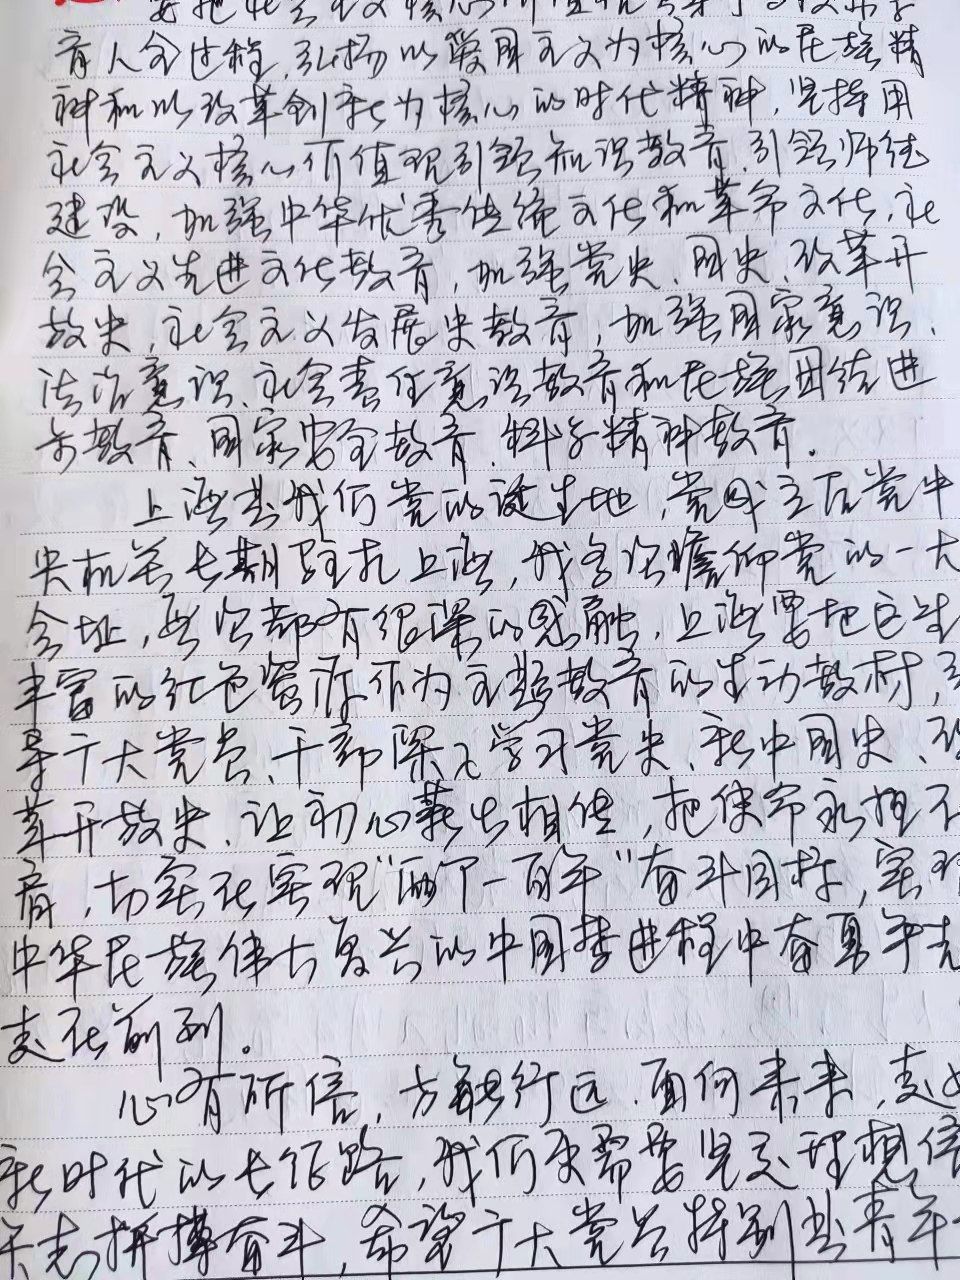 要把社会主义核心价值观贯穿
育人全过程,弘扬以爱国主义为核心的民族精
神和以改革创新为核心的时代精神,坚持用
社会主义核心价值观引领知识教育、引领师德
建设,加强中华优秀传统文化和革命文化、社
会主义先进文化教育,加强党史、国史、改革开
放史、社会主义发展史教育,加强国家意识、
法治意识、社会责任意识教育和民族团结进
步教育、国家安全教育、科学精神教育.
上海是我们党的诞生地,党成立后党中
央机关长期驻扎上海,我多次瞻仰党的一大
会址,每次都有很深的感触,上海要把这些
丰富的红色资源作为主题教育的生动教材,引
导广大党员、干部深入学习党史、新中国史、改
革开放史、让初心薪火相传,把使命永担在
肩,切实在实现“两个一百年”奋斗目标,实现
中华民族伟大复兴的中国梦进程中奋勇争先
走在前列。
心有所信,方能行远.面向未来,走好
新时代的长征路,我们更需要坚定理想信
矢志拼搏奋斗,希望广大党员特别是青年